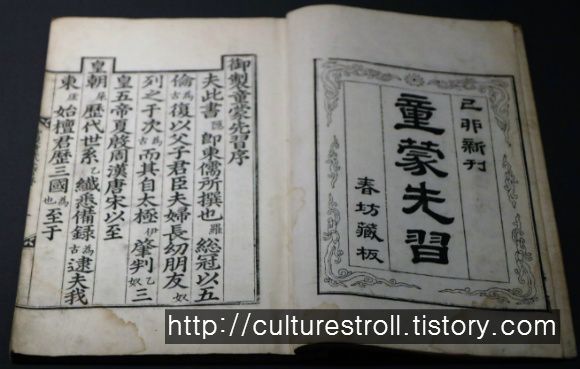 己卯新刊
童蒙先習
春坊藏板
御製童蒙先習序
夫此書隱卽東儒所撰也羅總冠以五
倫為古復以父子君臣夫婦長幼朋友奴
列之于次為古而其自太極伊肇判乙奴三
皇五帝夏殷周漢唐宋以至
皇朝厓歷代世系乙纖悉備録為古逮夫我
東厓始檀君歷三國為也至于
http://culturestroll.tistory.com